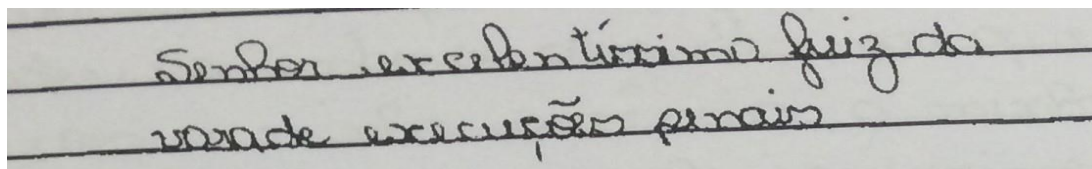 Senhor excelentíssimo Juiz da
vara de execuções penais